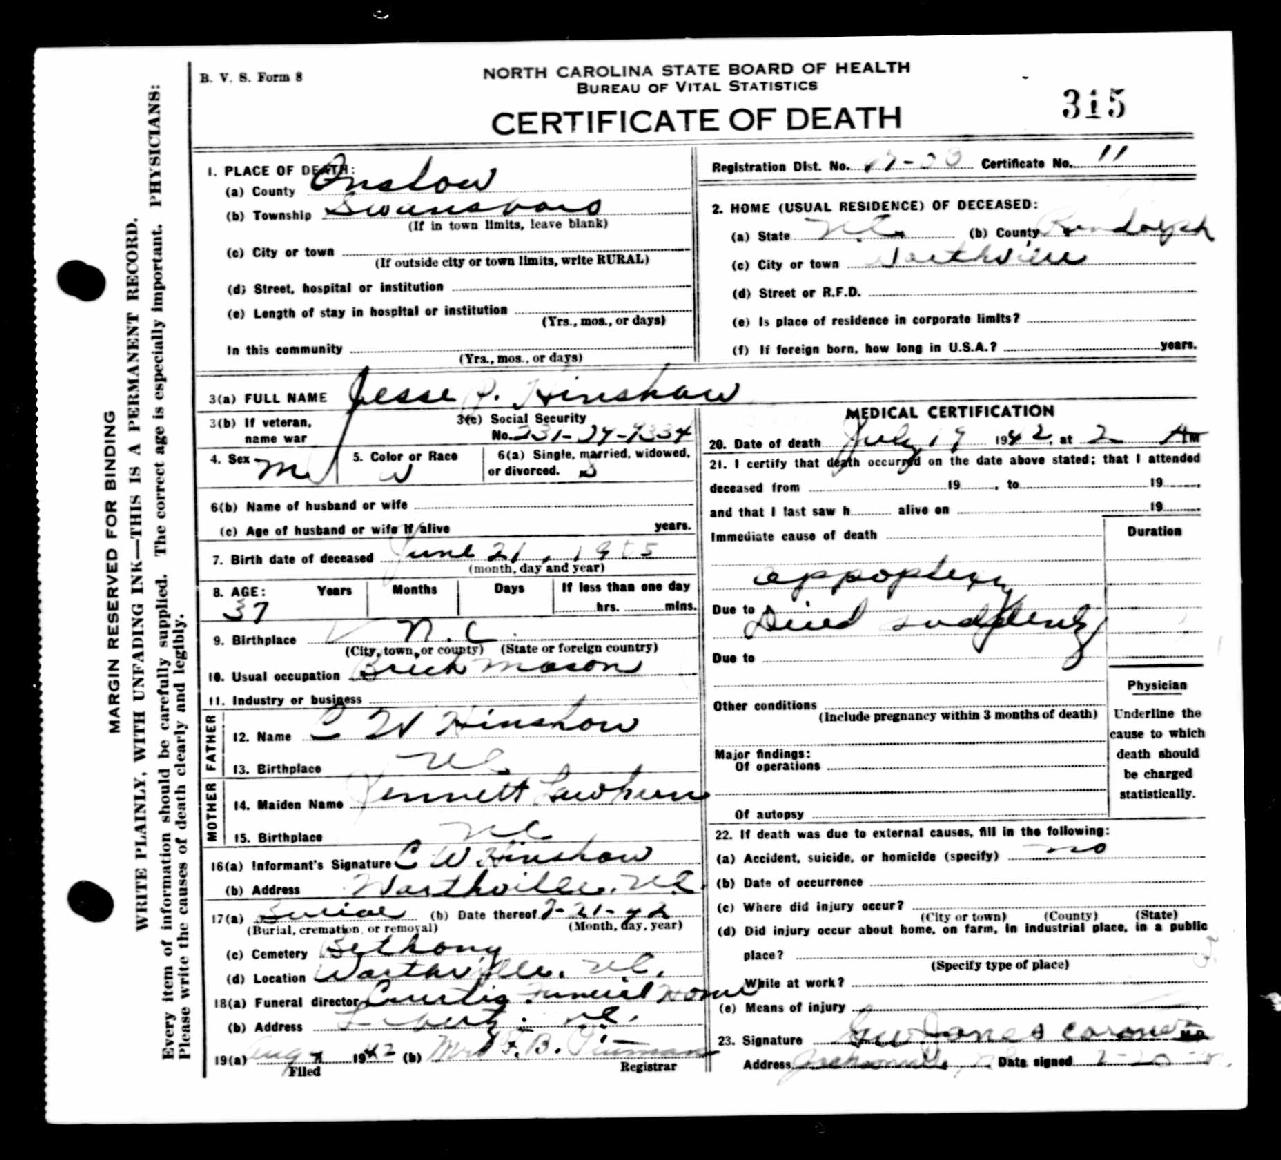 B. V. S. Form 8
NORTH CAROLINA STATE BOARD OF HEALTH
BUREAU OF VITAL STATISTICS
CERTIFICATE OF DEATH
315
MARGIN RESERVED FOR BINDING
WRITE PLAINLY, WITH UNFADING INK—THIS IS A PERMANENT RECORD.
Every item of information should be carefully supplied. The correct age is especially important. PHYSICIANS:
Please write the causes of death clearly and legibly.
1. PLACE OF DEATH:
(a) County Onslow
(b) Township Swansboro
(If in town limits, leave blank)
(c) City or town
(If outside city or town limits, write RURAL)
(d) Street, hospital or institution
(e) Length of stay in hospital or institution
(Yrs., mos., or days)
In this community
(Yrs., mos., or days)
Registration Dist. No. Certificate No. 11
2. HOME (USUAL RESIDENCE) OF DECEASED:
(a) State N.C. (b) County Randolph
(c) City or town
(d) Street or R.F.D.
(e) Is place of residence in corporate limits?
(f) If foreign born, how long in U.S.A.? years.
3(a) FULL NAME Jesse P. Hinshaw
3(b) If veteran, name war
3(c) Social Security
No.
4. Sex M 5. Color or Race W 6(a) Single, married, widowed, or divorced. S
6(b) Name of husband or wife
(c) Age of husband or wife if alive years.
7. Birth date of deceased June 21, 1905
(month, day and year)
8. AGE: Years Months Days If less than one day
37 hrs. mins.
9. Birthplace N. C.
(City, town, or county) (State or foreign country)
10. Usual occupation Brick mason
11. Industry or business
FATHER
12. Name C W Hinshaw
13. Birthplace N C
MOTHER
14. Maiden Name
15. Birthplace N C
16(a) Informant's Signature C W Hinshaw
(b) Address N.C.
17(a) Burial (b) Date thereof 7-21-42
(Burial, cremation, or removal) (Month, day, year)
(c) Cemetery Bethany
(d) Location N.C.
18(a) Funeral director Funeral Home
(b) Address Liberty. N.C.
19(a) Aug 1942 (b) Mrs F. B. Pittman
Filed Registrar
MEDICAL CERTIFICATION
20. Date of death July 19 1942, at 2 AM
21. I certify that death occurred on the date above stated; that I attended
deceased from 19 , to 19
and that I last saw h alive on 19
Immediate cause of death Duration
appoplexy
Due to Died suddenly
Due to
Other conditions
(Include pregnancy within 3 months of death)
Major findings:
Of operations
Of autopsy
Physician
Underline the
cause to which
death should
be charged
statistically.
22. If death was due to external causes, fill in the following:
(a) Accident, suicide, or homicide (specify) no
(b) Date of occurrence
(c) Where did injury occur?
(City or town) (County) (State)
(d) Did injury occur about home, on farm, in industrial place, in a public
place?
(Specify type of place)
While at work?
(e) Means of injury
23. Signature Jones coroner M.D.
Address Jacksonville, Date signed